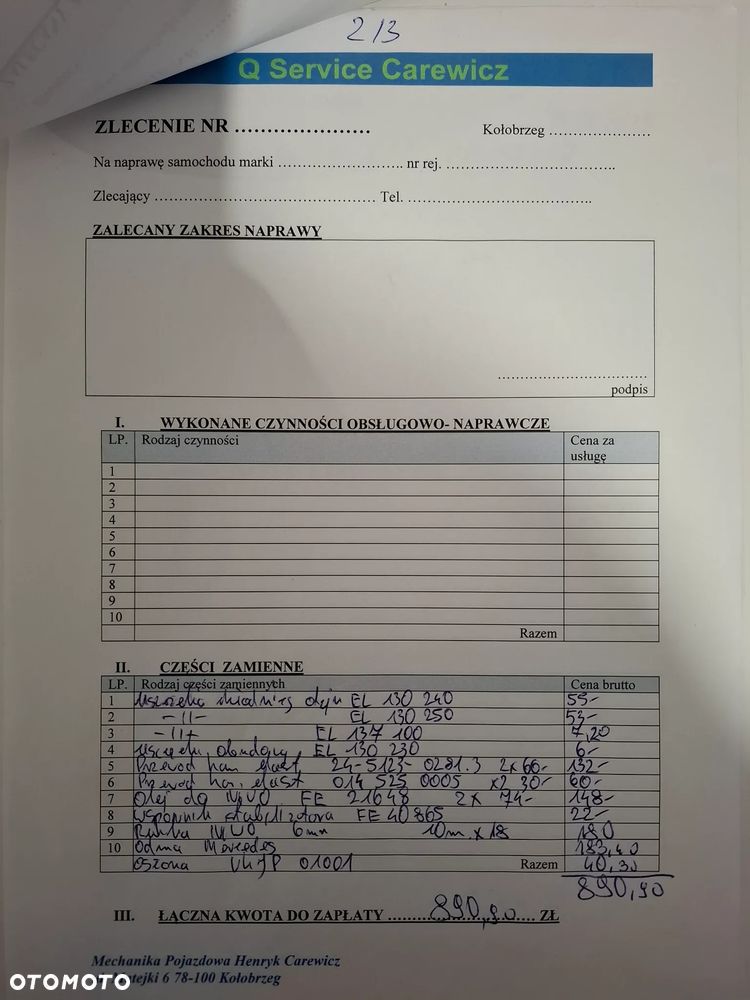 2/3
Q Service Carewicz
ZLECENIE NR ..................... Kołobrzeg .....................
Na naprawę samochodu marki .......................... nr rej. ...................................
Zlecający .............................................. Tel. ......................................
ZALECANY ZAKRES NAPRAWY
................................
podpis
I. WYKONANE CZYNNOŚCI OBSŁUGOWO- NAPRAWCZE
LP. Rodzaj czynności Cena za usługę
1
2
3
4
5
6
7
8
9
10
Razem
II. CZĘŚCI ZAMIENNE
LP. Rodzaj części zamiennych Cena brutto
1 Uszczelka oleju EL 130 240 55-
2 -||- EL 130 250 53-
3 -||- EL 137 100 7,20
4 Uszczeln. obudowy EL 130 230 6-
5 Przewód ham elast 24-5123-0281.3 2x66- 132-
6 Przewód ham. elast 014 525 0005 x2 30- 60-
7 Olej do FE 21648 2x 74- 148-
8 Wspornik stabilizatora FE 40865 22-
9 Rurka 6mm 10m. x 18 180
10 Odma Mercedes 183,40
osłona 01001 Razem 40,30
890,90
III. ŁĄCZNA KWOTA DO ZAPŁATY ........890,90..... ZŁ
Mechanika Pojazdowa Henryk Carewicz
Matejki 6 78-100 Kołobrzeg
OTOMOTO